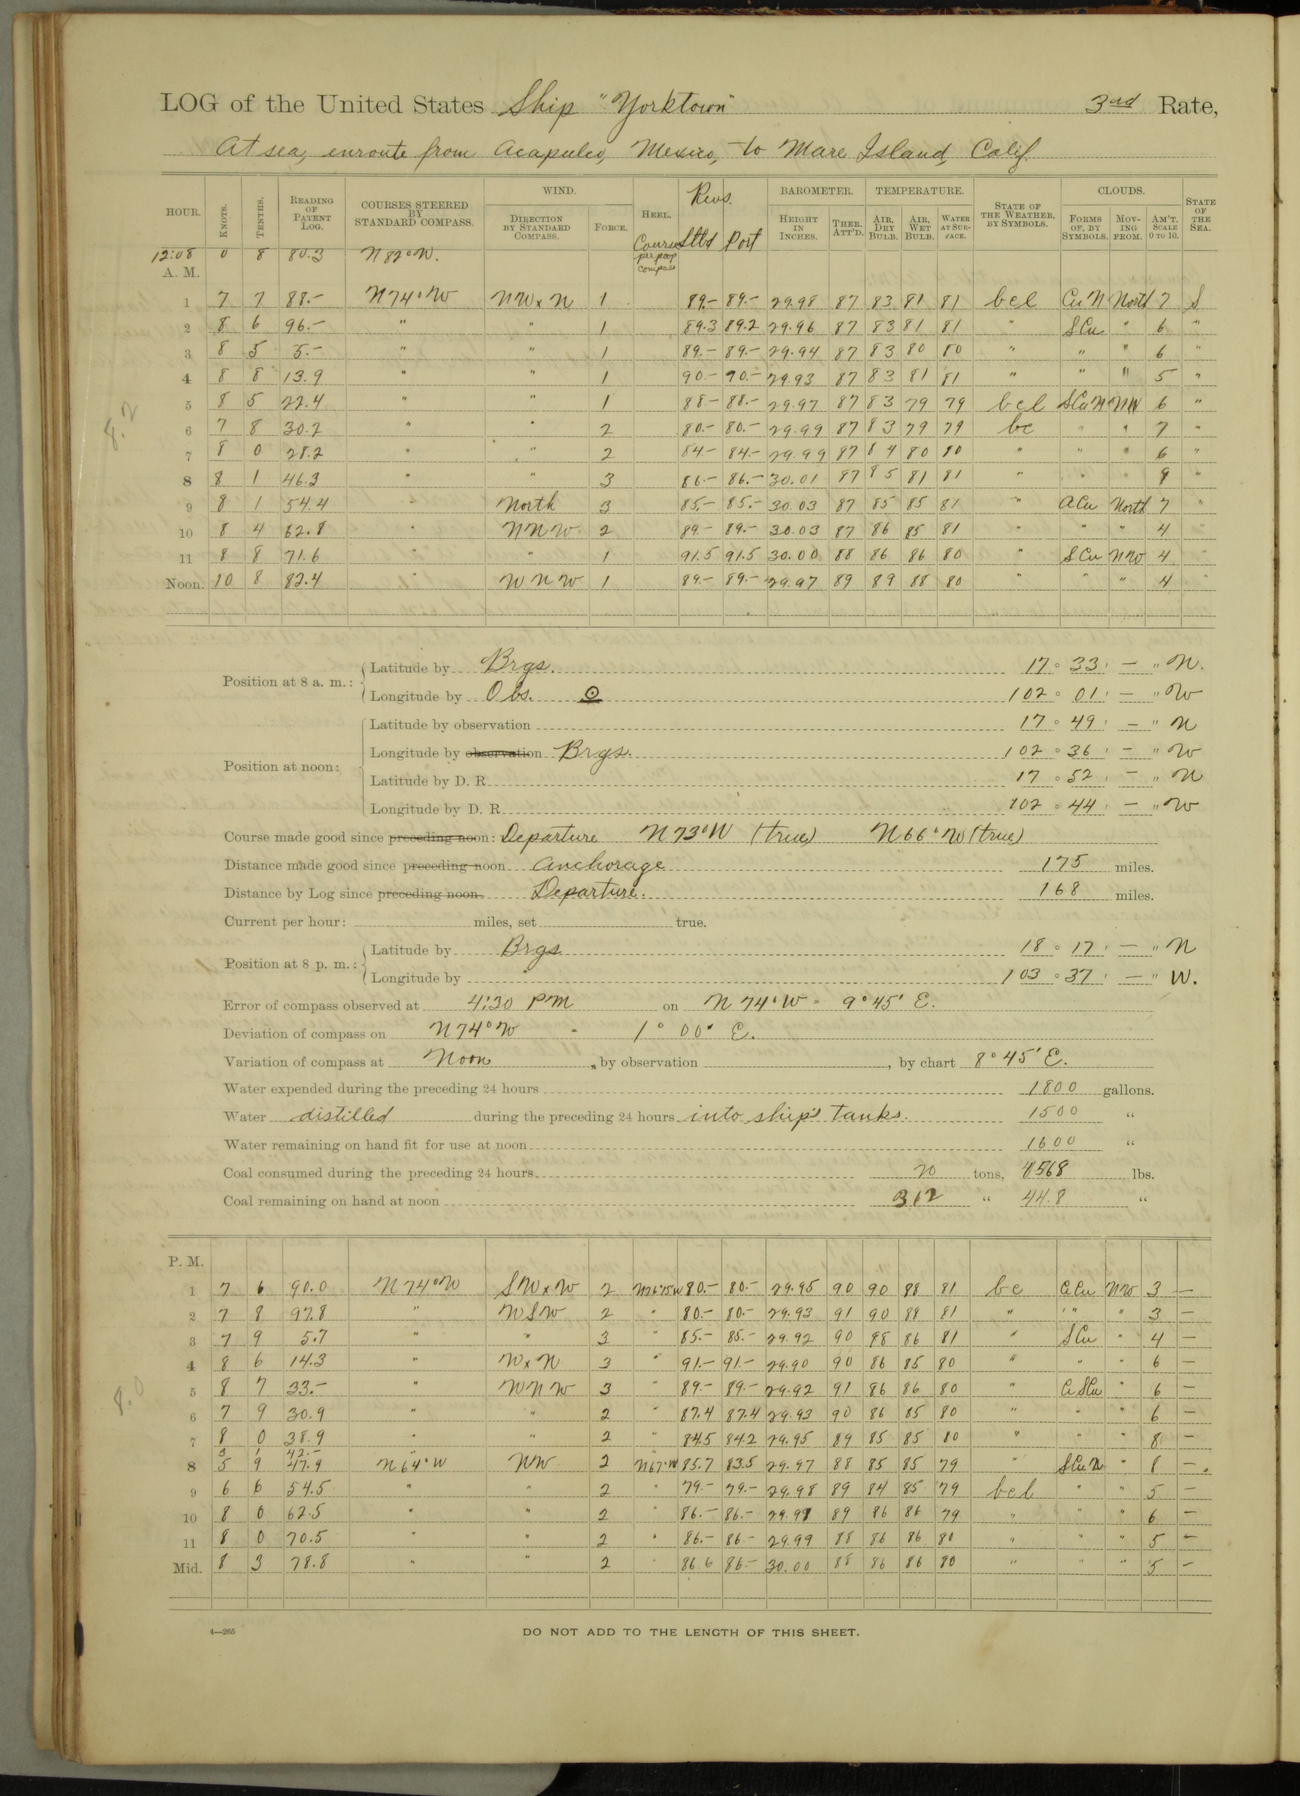 LOG of the United States Ship "Yorktown" 3rd Rate,
At sea, enroute from Acapulco, Mexico, to Mare Island, Calif.
HOUR. KNOTS. TENTHS. READING OF PATENT LOG. COURSES STEERED BY STANDARD COMPASS. WIND. DIRECTION BY STANDARD COMPASS. FORCE. HEEL. Course per poop compass Revs. Stbd Port BAROMETER. HEIGHT IN INCHES. THER. ATT'D. TEMPERATURE. AIR, DRY BULB. AIR, WET BULB. WATER AT SURFACE. STATE OF THE WEATHER, BY SYMBOLS. CLOUDS. FORMS OF, BY SYMBOLS. MOVING FROM. AM'T. SCALE 0 TO 10. STATE OF THE SEA.
12:08 0 8 80.3 N 82° W.
A. M.
1 7 7 88.- N 74° W NW x N 1 89.- 89.- 29.98 87 83 81 81 bcl Cu N North 7 S
2 8 6 96.- " " 1 89.3 89.2 29.96 87 83 81 81 " S Cu " 6 "
3 8 5 5.- " " 1 89.- 89.- 29.94 87 83 80 80 " " " 6 "
4 8 8 13.9 " " 1 90.- 90.- 29.93 87 83 81 81 " " " 5 "
5 8 5 22.4 " " 1 88.- 88.- 29.97 87 83 79 79 bcl S Cu N NW 6 "
6 7 8 30.2 " " 2 80.- 80.- 29.99 87 83 79 79 bc " " 7 "
7 8 0 28.2 " " 2 84.- 84.- 29.99 87 84 80 80 " " " 6 "
8 8 1 46.3 " " 3 86.- 86.- 30.01 87 85 81 81 " " " 9 "
9 8 1 54.4 North 3 85.- 85.- 30.03 87 85 85 81 " A Cu North 7 "
10 8 4 62.8 NNW. 2 89- 89.- 30.03 87 86 85 81 " " " 4
11 8 8 71.6 " " 1 91.5 91.5 30.00 88 86 86 80 " S Cu NW 4
Noon. 10 8 82.4 " WNW 1 89.- 89.- 29.97 89 89 88 80 " " " 4 "
8.2
Position at 8 a. m.: Latitude by Brgs. 17 ° 33 ' — " N.
Longitude by Obs. ☉ 102 ° 01 ' — " W
Position at noon: Latitude by observation 17 ° 49 ' — " N
Longitude by observation Brgs. 102 ° 36 ' — " W
Latitude by D. R. 17 ° 52 ' — " N
Longitude by D. R. 102 ° 44 ' — " W
Course made good since preceding noon: Departure N 73° W (true) N 66° W (true)
Distance made good since preceding noon Anchorage 175 miles.
Distance by Log since preceding noon Departure. 168 miles.
Current per hour: miles, set true.
Position at 8 p. m.: Latitude by Brgs 18 ° 17 ' — " N
Longitude by " 103 ° 37 ' — " W.
Error of compass observed at 4:30 PM on N 74° W - 9° 45' E.
Deviation of compass on N 74° W - 1° 00' E.
Variation of compass at Noon, by observation , by chart 8° 45' E.
Water expended during the preceding 24 hours 1800 gallons.
Water distilled during the preceding 24 hours into ship's tanks. 1500 "
Water remaining on hand fit for use at noon 1600 "
Coal consumed during the preceding 24 hours 20 tons, 1568 lbs.
Coal remaining on hand at noon 312 " 448 "
P. M.
1 7 6 90.0 N 74° W SW x W 2 80.- 80.- 29.95 90 90 88 81 bc Cu NW 3 —
2 7 8 97.8 " WSW 2 " 80.- 80.- 29.93 91 90 88 81 " " " 3 —
3 7 9 5.7 " " 3 " 85.- 85.- 29.92 90 88 86 81 " S Cu " 4 —
4 8 6 14.3 " W x N 3 " 91.- 91.- 29.90 90 86 85 80 " " " 6 —
5 8 7 33.- " WNW 3 " 89.- 89.- 29.92 91 86 86 80 " S Cu " 6 —
6 7 9 30.9 " " 2 " 87.4 87.4 29.93 90 86 85 80 " " " 6 —
7 8 0 38.9 " " 2 " 84.5 84.2 29.95 89 85 85 80 " " " 8 —
3 1 42.-
8 5 9 47.9 N 64° W NW 2 N 67° W 85.7 83.5 29.97 88 85 85 79 " S Cu N " 8 —
9 6 6 54.5 " " 2 " 79.- 79.- 29.98 89 84 85 79 bcl " " 5 —
10 8 0 62.5 " " 2 86.- 86.- 29.98 89 86 86 79 " " " 6 —
11 8 0 70.5 " " 2 " 86.- 86.- 29.99 88 86 86 80 " " " 5 —
Mid. 8 3 78.8 " " 2 " 86.6 86.- 30.00 88 86 86 80 " " " 5 —
8.0
4—265
DO NOT ADD TO THE LENGTH OF THIS SHEET.